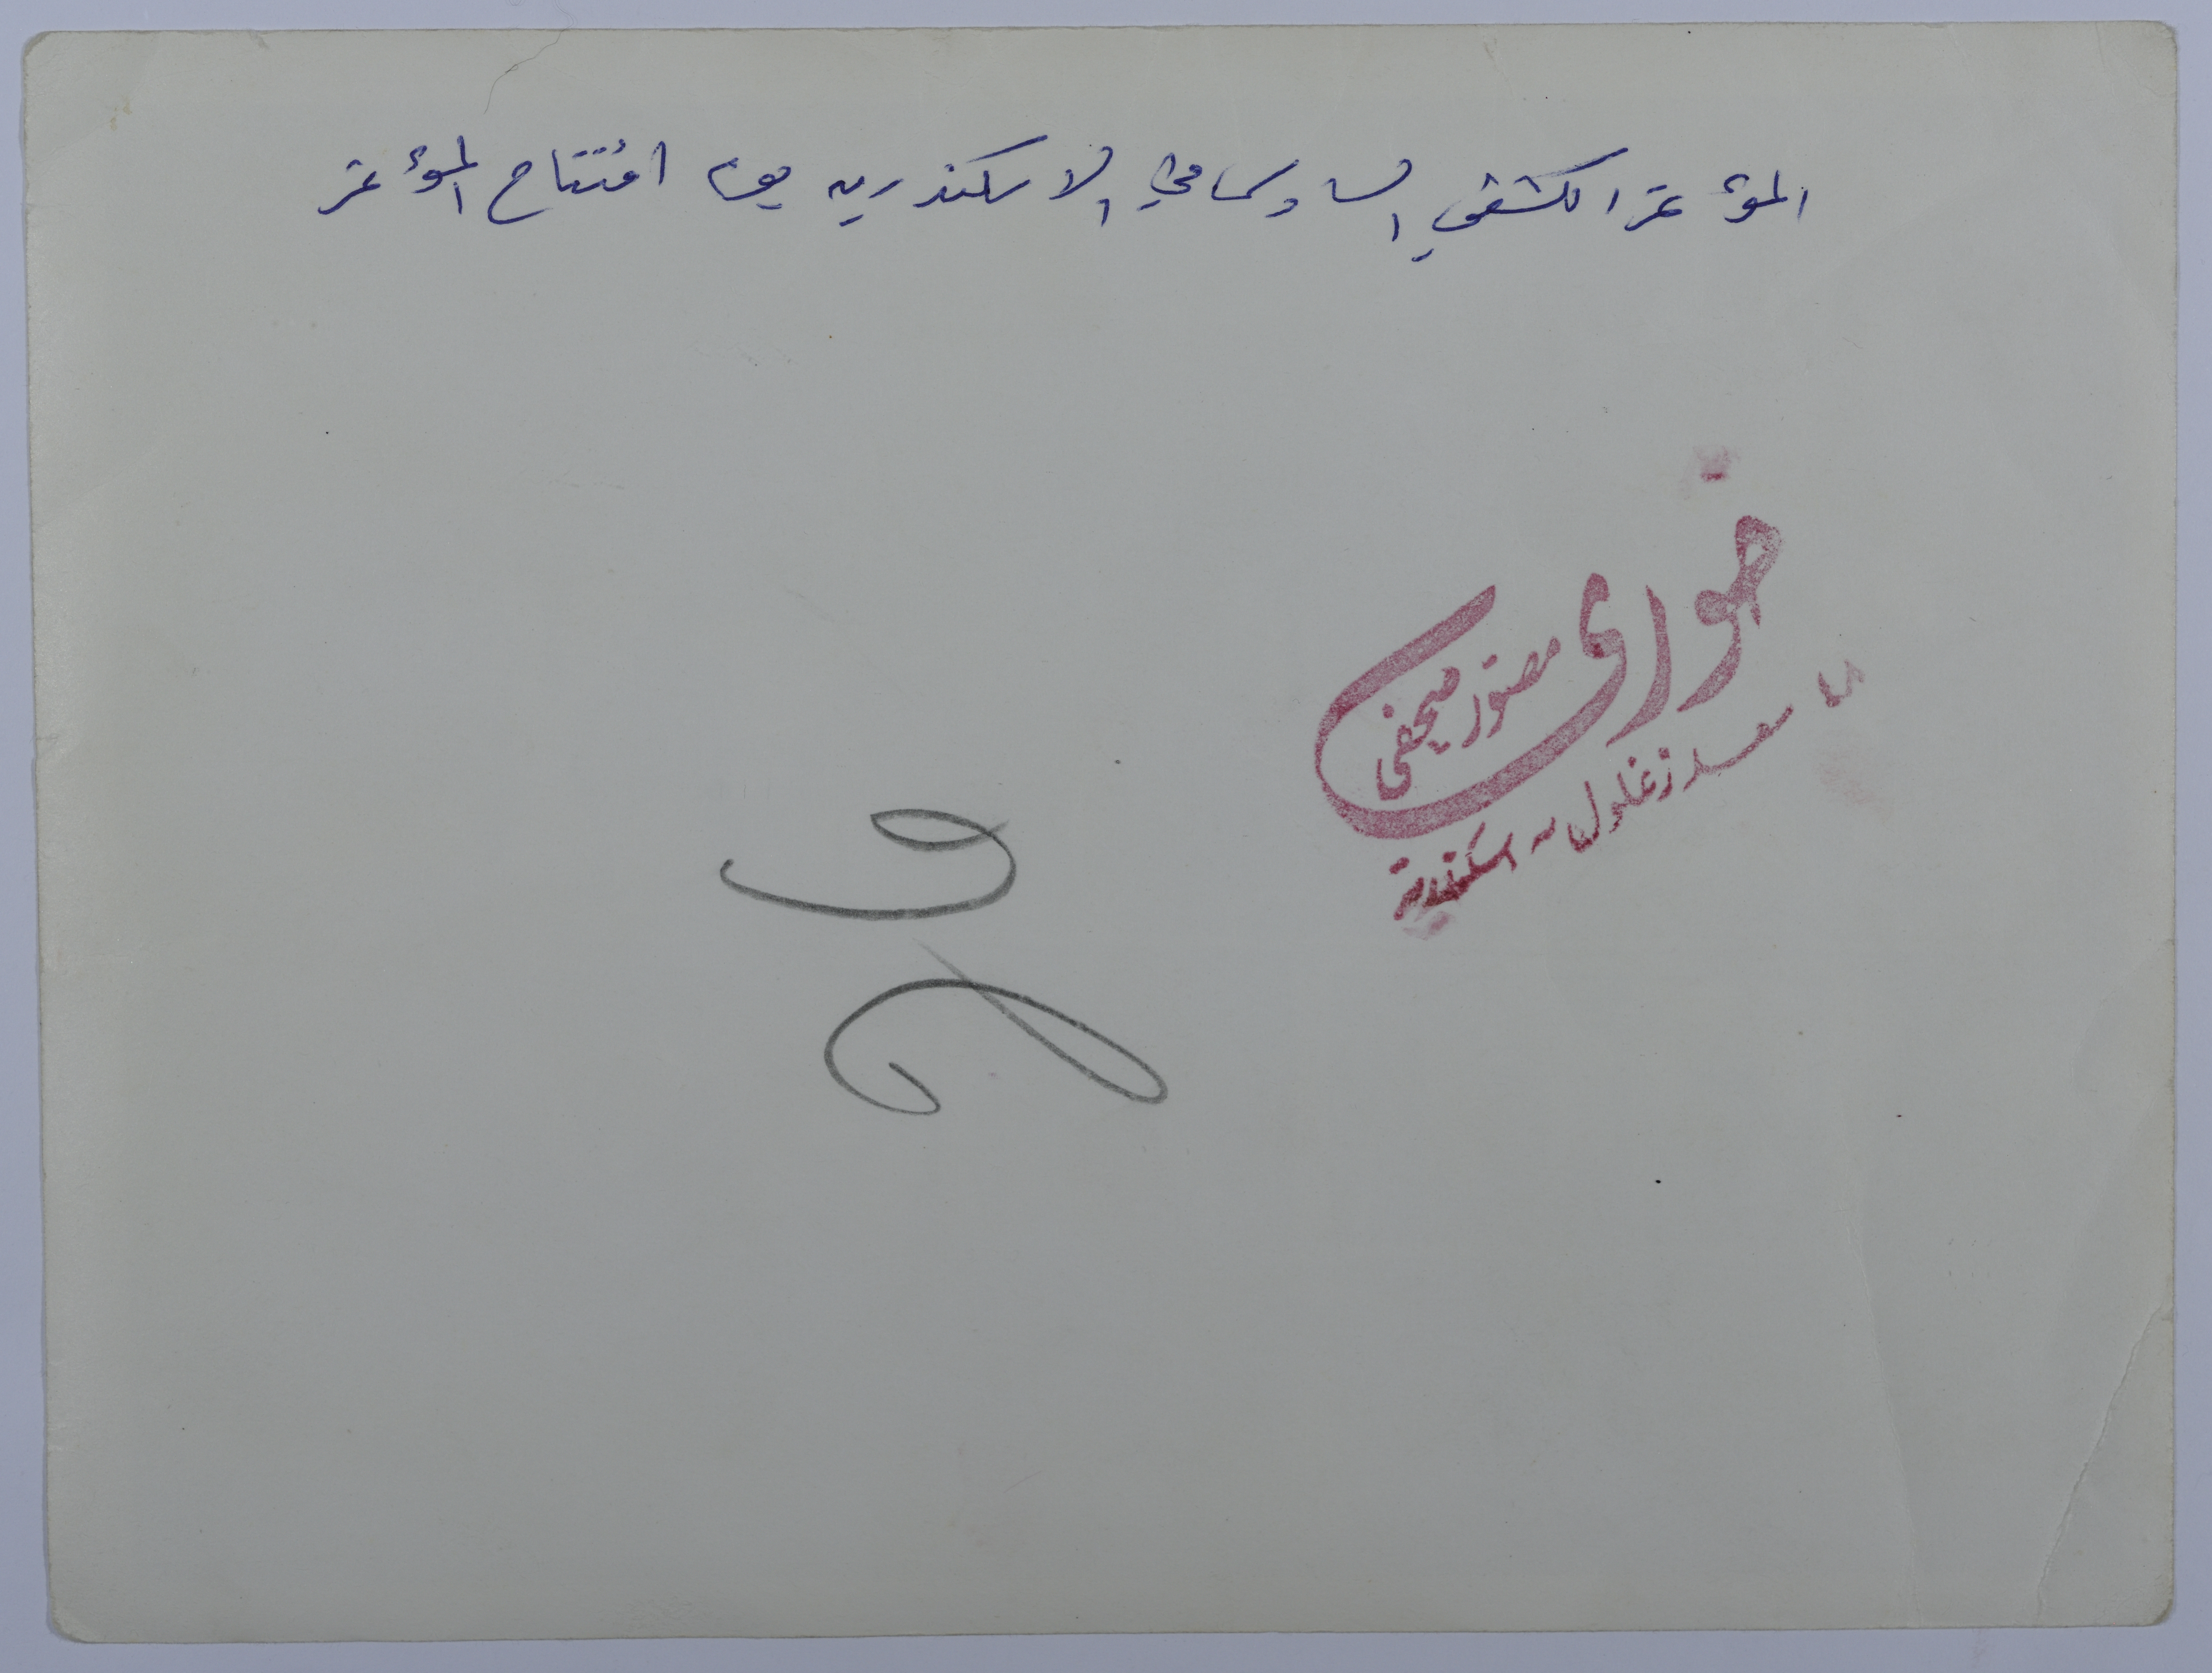 المؤتمر الكشفي السادس في الاسكندريه يوم افتتاح المؤتمر
صوراف
مصور صحفى
سعد زغلول - اسكندرية